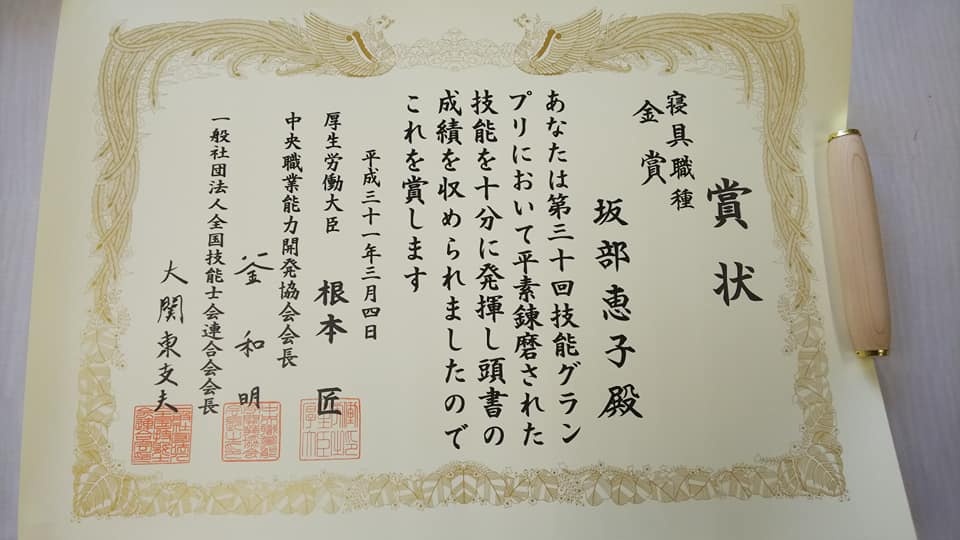 賞状
寝具職種
金賞
坂部恵子殿
あなたは第三十回技能グラン
プリにおいて平素錬磨された
技能を十分に発揮し頭書の
成績を収められましたので
これを賞します
平成三十一年三月四日
厚生労働大臣 根本 匠
中央職業能力開発協会会長
釜 和明
一般社団法人全国技能士会連合会会長
大関東支夫